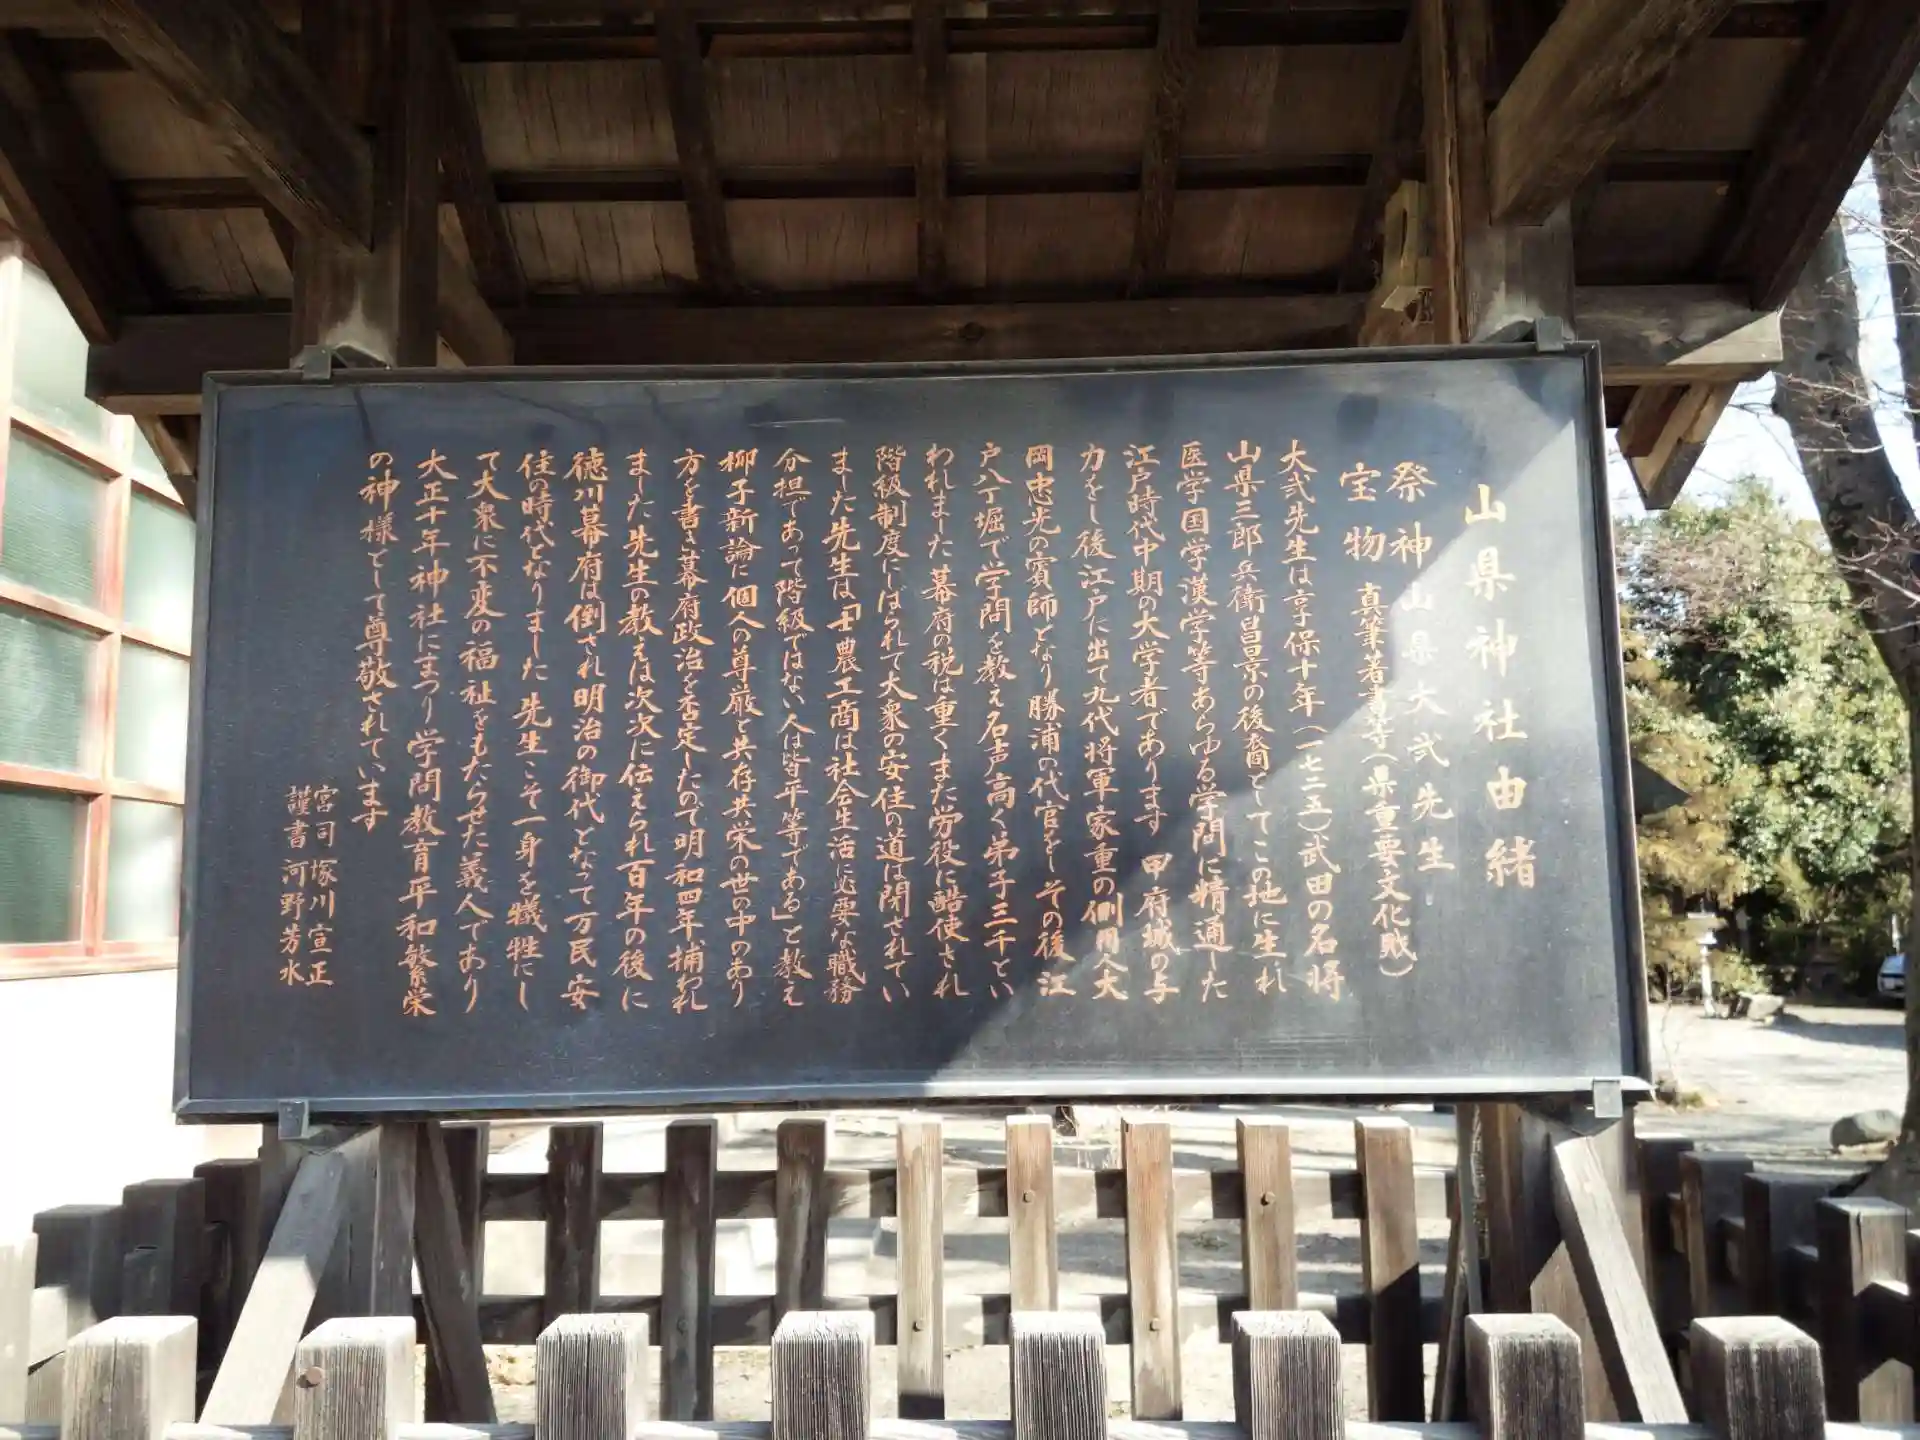 山県神社由緒
祭神 山県大弐先生
宝物 真筆著書等(県重要文化財)
大弐先生は享保十年(一七二五)武田の名将
山県三郎兵衛昌景の後裔としてこの地に生れ
医学国学漢学等あらゆる学問に精通した
江戸時代中期の大学者であります 甲府城の与
力をし後江戸に出て九代将軍家重の側用人大
岡忠光の賓師となり勝浦の代官をしその後江
戸八丁堀で学問を教え名声高く弟子三千とい
われました 幕府の税は重くまた労役に酷使され
階級制度にしばられて大衆の安住の道は閉されてい
ました 先生は「士農工商は社会生活に必要な職務
分担であって階級ではない人は皆平等である」と教え
柳子新論に個人の尊厳と共存共栄の世の中のあり
方を書き幕府政治を否定したので明和四年捕われ
ました 先生の教えは次次に伝えられ百年の後に
徳川幕府は倒され明治の御代となって万民安
住の時代となりました 先生こそ一身を犠牲にし
て大衆に不変の福祉をもたらせた義人であり
大正十年神社にまつり学問教育平和繁栄
の神様として尊敬されています
宮司 塚川宣正
謹書 河野芳水